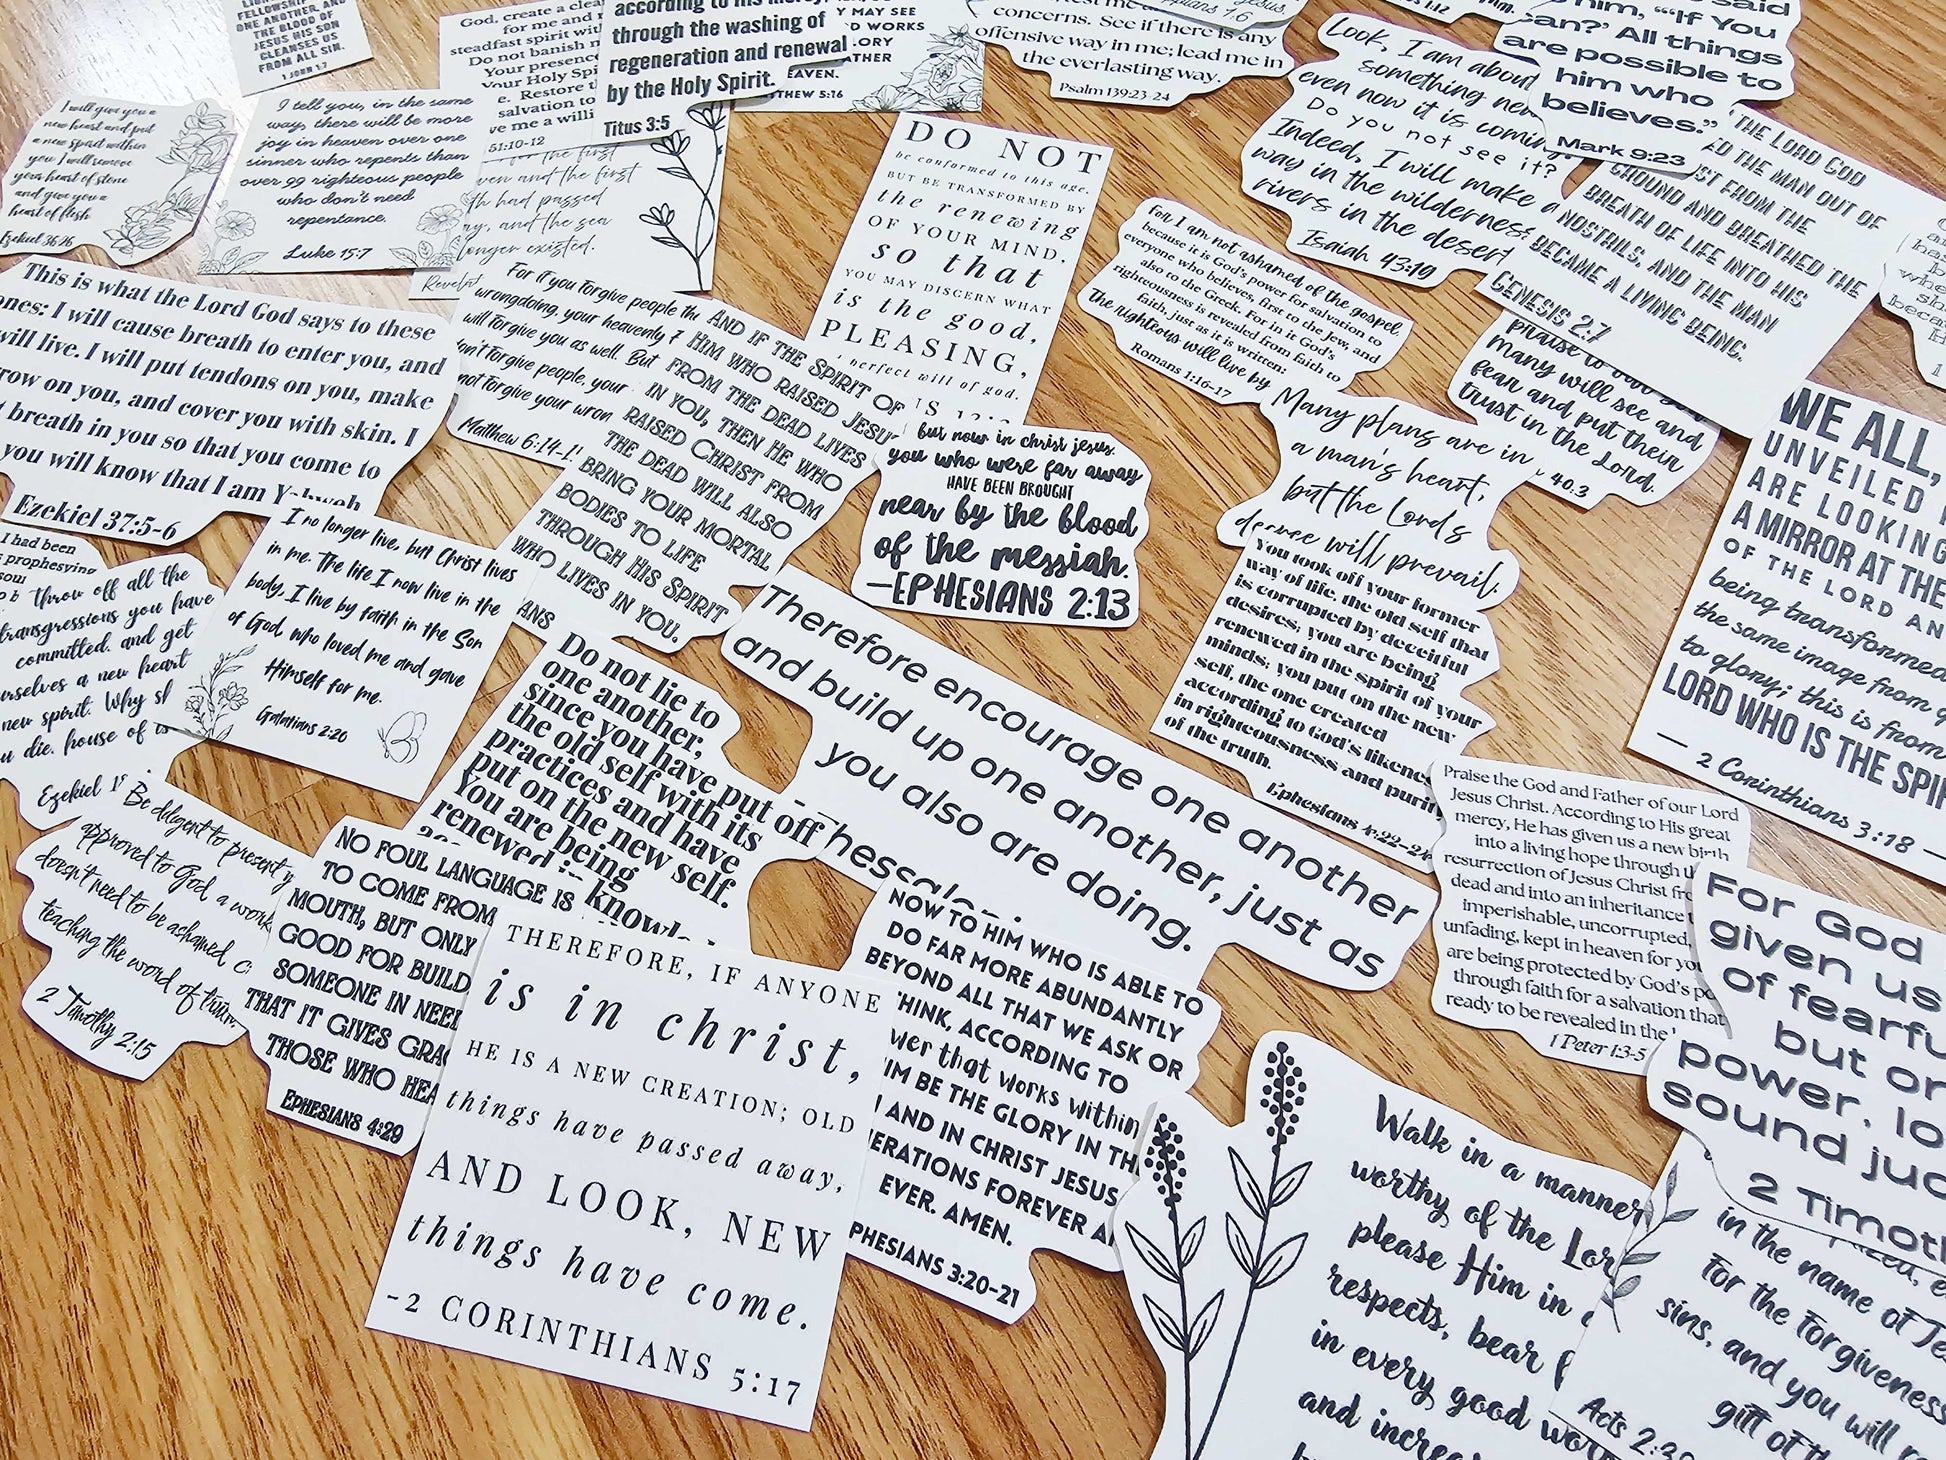 FELLOWSHIP
ONE ANOTHER, AND
THE BLOOD OF
JESUS HIS SON
CLEANSES US
FROM ALL SIN.
1 JOHN 1:7
God, create a clea
for me and
steadfast spirit
Do not banish
Your presence
Your Holy Spi
e. Restore t
salvation to
ve me a willi
51:10-12
according to His mercy,
through the washing of
regeneration and renewal
by the Holy Spirit.
Titus 3:5
MAY SEE
WORKS
GLORY
EAVEN.
THEW 5:16
concerns. See if there is any
offensive way in me; lead me in
the everlasting way.
Psalm 139:23-24
Look, I am about
something new
even now it is coming.
Do you not see it?
Indeed, I will make a
way in the wilderness
rivers in the desert
Isaiah 43:19
him, "'If You
can?' All things
are possible to
him who
believes."
Mark 9:23
THE LORD GOD
ED THE MAN OUT OF
ST FROM THE
GROUND AND BREATHED THE
BREATH OF LIFE INTO HIS
NOSTRILS, AND THE MAN
BECAME A LIVING BEING.
GENESIS 2:7
I will give you a
new heart and put
a new spirit within
you. I will remove
your heart of stone
and give you a
heart of flesh
Ezekiel 36:26
I tell you, in the same
way, there will be more
joy in heaven over one
sinner who repents than
over 99 righteous people
who don't need
repentance.
Luke 15:7
the first
ven and the first
th had passed
ay, and the sea
longer existed.
Revelat
DO NOT
be conformed to this age,
BUT BE TRANSFORMED BY
the renewing
OF YOUR MIND,
so that
YOU MAY DISCERN WHAT
is the good,
PLEASING,
perfect will of god.
For I am not ashamed of the gospel,
because it is God's power for salvation to
everyone who believes, first to the Jew, and
also to the Greek. For in it God's
righteousness is revealed from faith to
faith, just as it is written:
The righteous will live by
Romans 1:16-17
praise to our God
Many will see and
fear and put their
trust in the Lord.
40:3
This is what the Lord God says to these
ones: I will cause breath to enter you, and
will live. I will put tendons on you, make
row on you, and cover you with skin. I
t breath in you so that you come to
you will know that I am Yahweh
Ezekiel 37:5-6
For if you forgive people th
wrongdoing, your heavenly
will forgive you as well. But
don't forgive people, your
not forgive your wron
Matthew 6:14-1
AND IF THE SPIRIT OF
HIM WHO RAISED JESUS
FROM THE DEAD LIVES
IN YOU, THEN HE WHO
RAISED CHRIST FROM
THE DEAD WILL ALSO
BRING YOUR MORTAL
BODIES TO LIFE
THROUGH HIS SPIRIT
WHO LIVES IN YOU.
ANS
but now in christ jesus,
you who were far away
HAVE BEEN BROUGHT
near by the blood
of the messiah.
-EPHESIANS 2:13
Many plans are in
a man's heart,
but the Lord's
decree will prevail.
You took off your former
way of life, the old self that
is corrupted by deceitful
desires; you are being
renewed in the spirit of your
minds; you put on the new
self, the one created
according to God's likeness
in righteousness and purity
of the truth.
Ephesians 4:22-24
WE ALL,
UNVEILED
ARE LOOKING
A MIRROR AT THE
OF THE LORD AN
being transformed
the same image from
to glory; this is from
LORD WHO IS THE SPIR
— 2 Corinthians 3:18 —
I had been
prophesying
throw off all the
transgressions you have
committed, and get
urselves a new heart
new spirit. Why sh
u die, house of is
Ezekiel 1
I no longer live, but Christ lives
in me. The life I now live in the
body, I live by faith in the Son
of God, who loved me and gave
Himself for me.
Galatians 2:20
Do not lie to
one another,
since you have put off
the old self with its
practices and have
put on the new self.
You are being
renewed in
knowl
Therefore encourage one another
and build up one another, just as
you also are doing.
Thessalon
Praise the God and Father of our Lord
Jesus Christ. According to His great
mercy, He has given us a new birth
into a living hope through th
resurrection of Jesus Christ fr
dead and into an inheritance
imperishable, uncorrupted,
unfading, kept in heaven for you
are being protected by God's po
through faith for a salvation that
ready to be revealed in the
1 Peter 1:3-5
Be diligent to present y
approved to God, a work
doesn't need to be ashamed, c
teaching the word of truth.
2 Timothy 2:15
NO FOUL LANGUAGE IS
TO COME FROM
MOUTH, BUT ONLY
GOOD FOR BUILD
SOMEONE IN NEED
THAT IT GIVES GRAC
THOSE WHO HEA
EPHESIANS 4:29
THEREFORE, IF ANYONE
is in christ,
HE IS A NEW CREATION; OLD
things have passed away,
AND LOOK, NEW
things have come.
-2 CORINTHIANS 5:17
NOW TO HIM WHO IS ABLE TO
DO FAR MORE ABUNDANTLY
BEYOND ALL THAT WE ASK OR
THINK, ACCORDING TO
wer that works within
IM BE THE GLORY IN TH
AND IN CHRIST JESUS
ERATIONS FOREVER A
EVER. AMEN.
PHESIANS 3:20-21
For God
given us
of fearfu
but on
power, lo
sound jud
2 Timot
Walk in a manner
worthy of the Lor
please Him in
respects, bear f
in every good wor
and increas
in the name of Je
for the forgiveness
sins, and you will r
gift of th
Acts 2:38